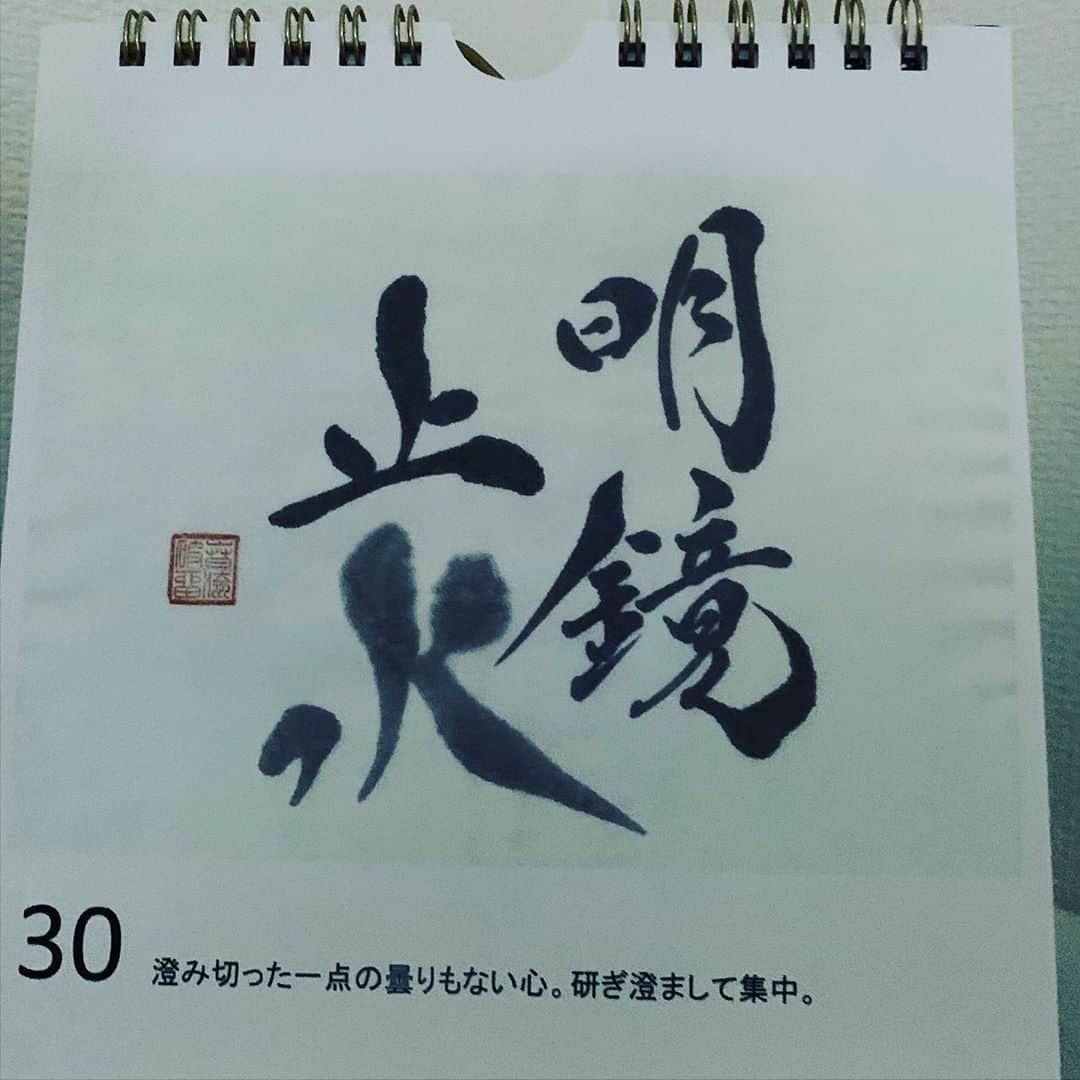 明鏡
止水
30
澄み切った一点の曇りもない心。研ぎ澄まして集中。